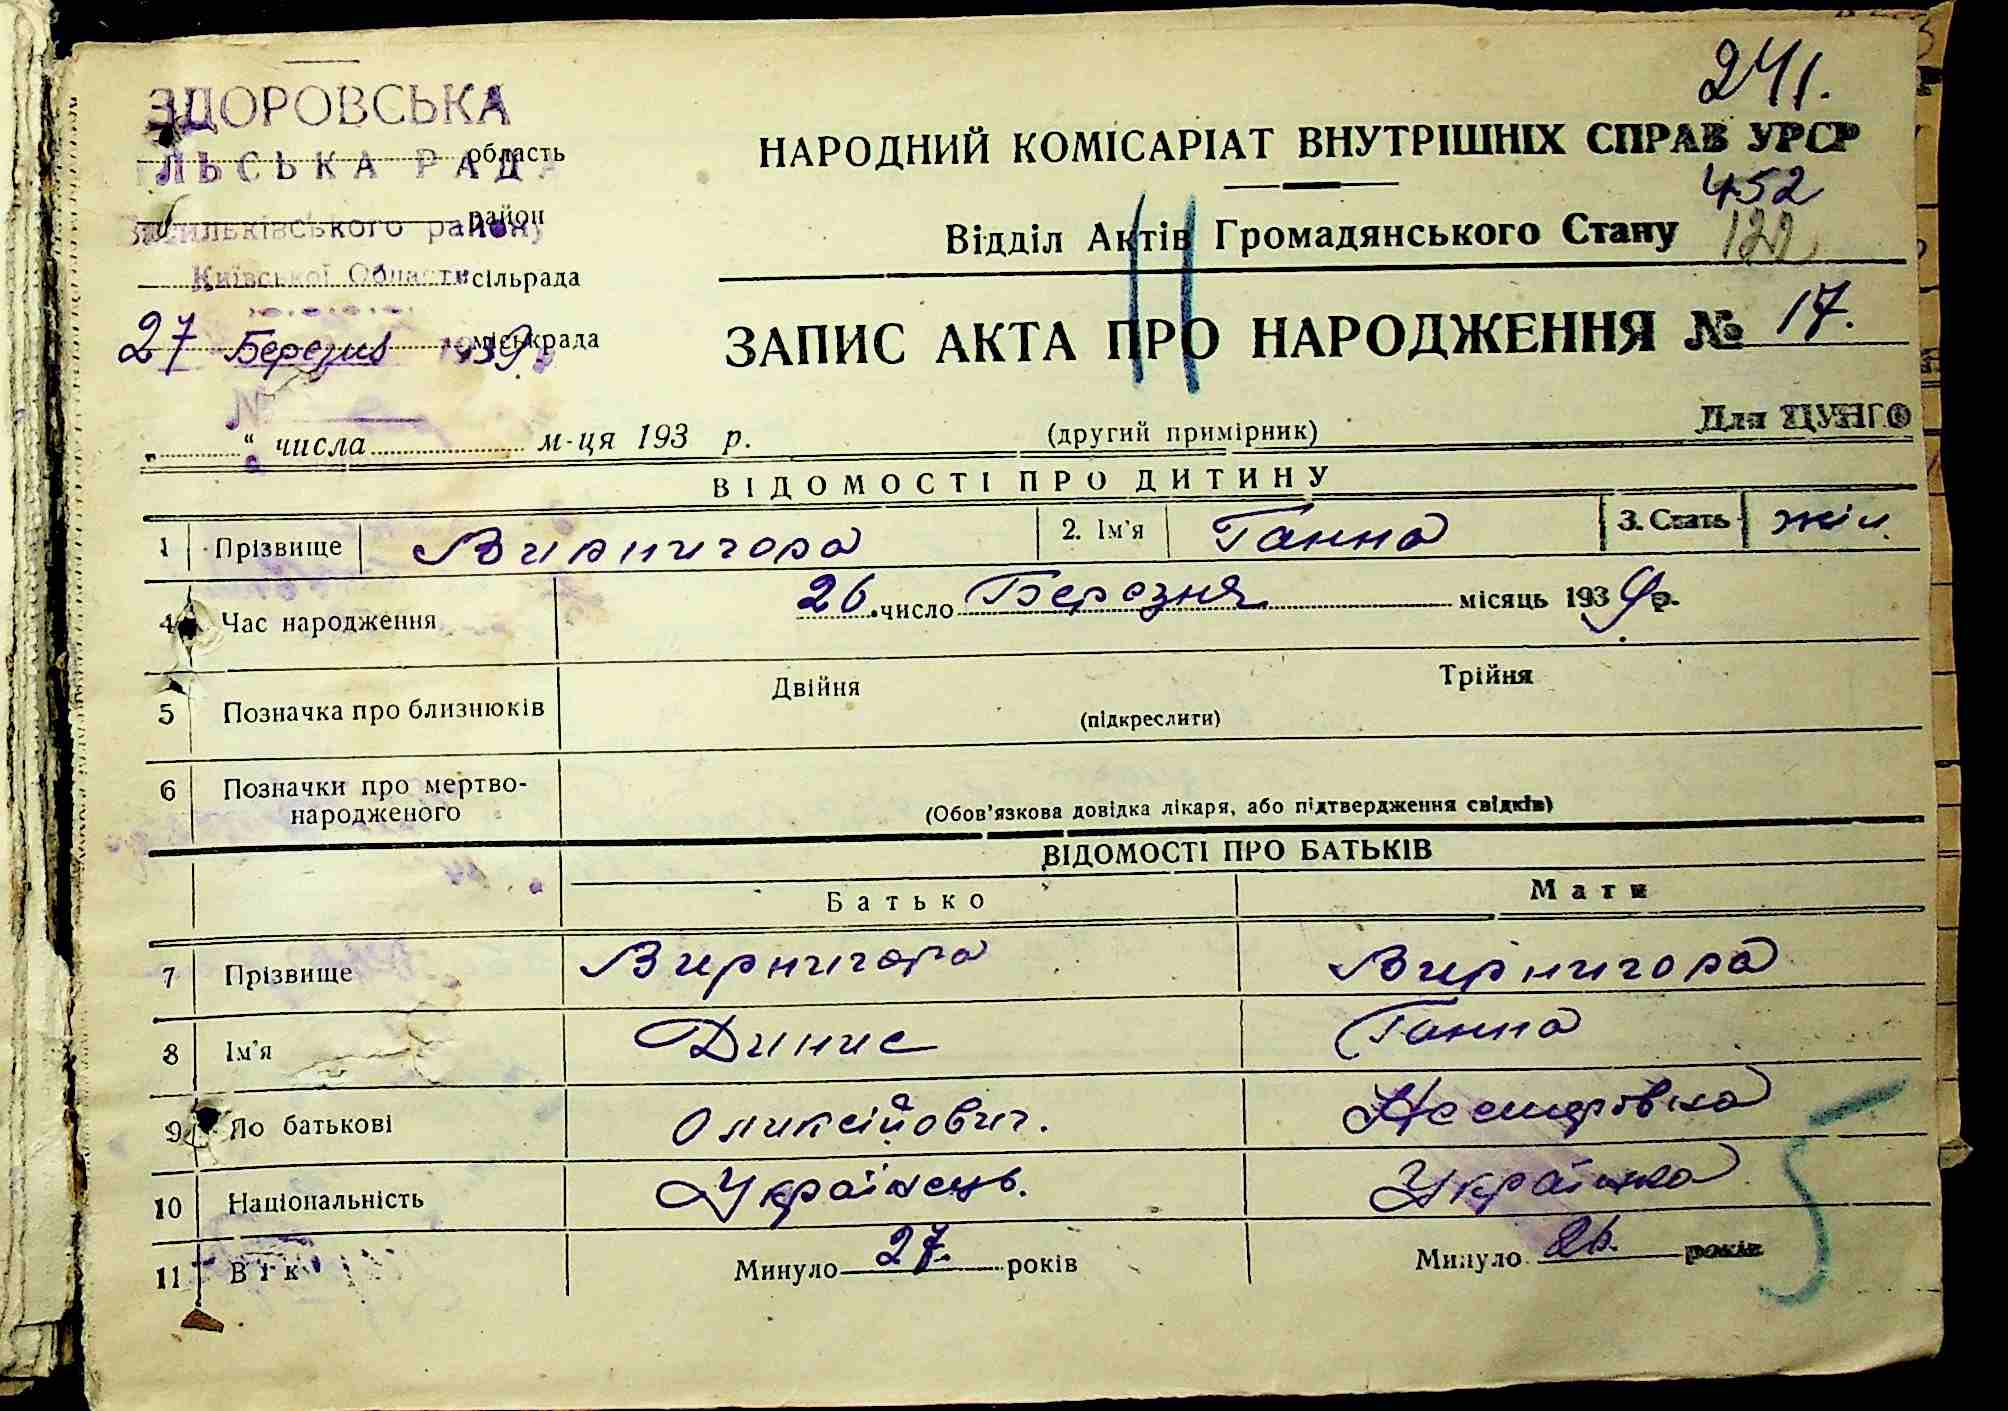 241.
ЗДОРОВСЬКА
область
ЛЬСЬКА РАДА
район
Васильківського району
Київської Області сільрада
27 Березня 1939 міськрада
№
НАРОДНИЙ КОМІСАРІАТ ВНУТРІШНІХ СПРАВ УРСР
452
Відділ Актів Громадянського Стану
122
ЗАПИС АКТА ПРО НАРОДЖЕННЯ № 17.
„ “ числа м-ця 193 р.
(другий примірник)
Для ЦУНГО
ВІДОМОСТІ ПРО ДИТИНУ
1 Прізвище Вирнигора 2. Ім'я Ганна 3. Стать жін.
4 Час народження 26. число Березня місяць 1939 р.
5 Позначка про близнюків Двійня Трійня
(підкреслити)
6 Позначки про мертво-
народженого
(Обов'язкова довідка лікаря, або підтвердження свідків)
ВІДОМОСТІ ПРО БАТЬКІВ
Батько Мати
7 Прізвище Вирнигора Вирнигора
8 Ім'я Динис Ганна
9 По батькові Оликсійович.
10 Національність Українець. Українка
11 Вік Минуло 27. років Минуло 26. років
5